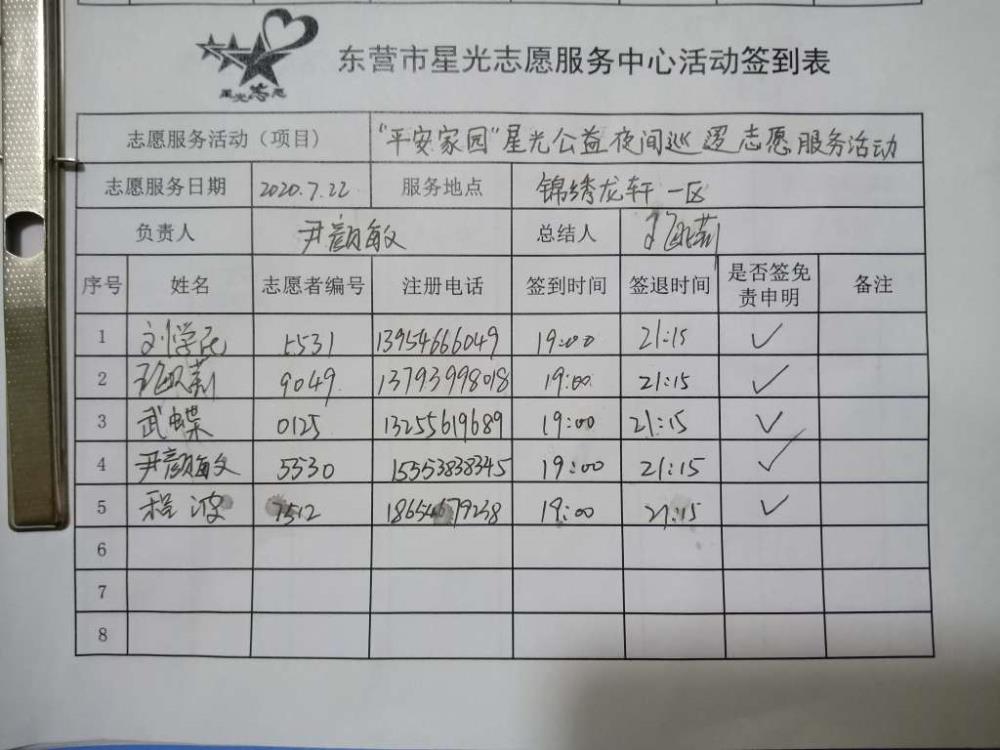 星光志愿
东营市星光志愿服务中心活动签到表
志愿服务活动（项目） "平安家园"星光公益夜间巡逻志愿服务活动
志愿服务日期 2020.7.22 服务地点 锦绣龙轩一区
负责人 尹颜敏 总结人
序号 姓名 志愿者编号 注册电话 签到时间 签退时间 是否签免责申明 备注
1 刘学民 5531 13954666049 19:00 21:15 ✓
2 9049 13793998018 19:00 21:15 ✓
3 武蝶 0125 13255619689 19:00 21:15 ✓
4 尹颜敏 5530 15553838345 19:00 21:15 ✓
5 程波 7512 18654679238 19:00 21:15 ✓
6
7
8